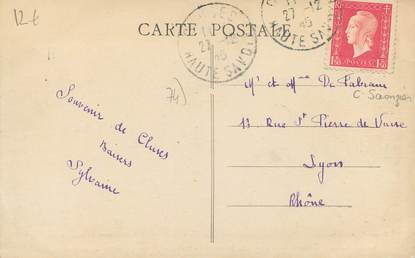 12 €
CARTE POSTALE
27-12
45
HAUTE SAVOIE
27-12
45
HAUTE SAVOIE
74)
Souvenir de Cluses
Baisers
Sylvaine
Mr et Mme De Fabiani
13 Rue St Pierre de Vaise
Lyon
Rhône